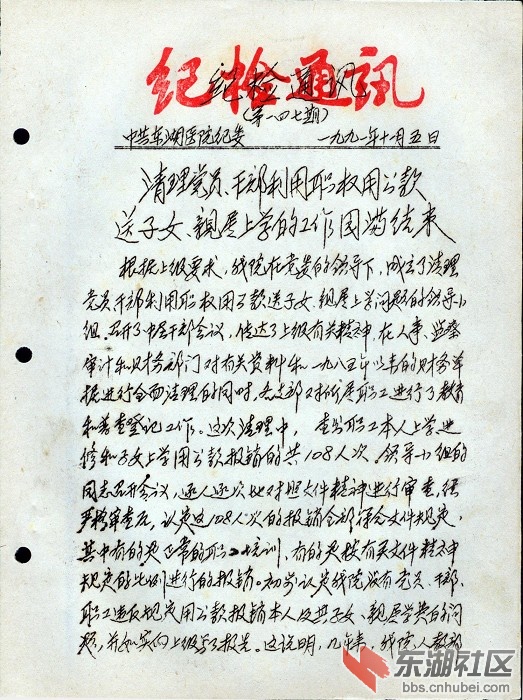 纪检通讯
纪检通讯
(第一四七期)
中共东湖医院纪委 一九九一年十一月五日
清理党员、干部利用职权用公款
送子女、亲属上学的工作圆满结束
根据上级要求,我院在党委的领导下,成立了清理
党员干部利用职权用公款送子女、亲属上学问题的领导小
组,召开了中层干部会议,传达了上级有关精神,在人事、监察
审计和财务部门对有关资料和一九八五年以来的财务单
据进行全面清理的同时,各支部对所属职工进行了教育
和普查登记工作。这次清理中,查出职工本人上学进
修和子女上学用公款报销的共108人次。领导小组的
同志召开会议,逐人逐次地对照文件精神进行审查,经
严格审查后,认定这108人次的报销全部符合文件规定,
其中有的是正常的职工培训,有的是按有关文件精神
规定的比例进行的报销。初步认定我院没有党员、干部、
职工违反规定用公款报销本人及其子女、亲属学费的问
题,并如实向上级写了报告。这说明,几年来,我院
东湖社区
bbs.cnhubei.com